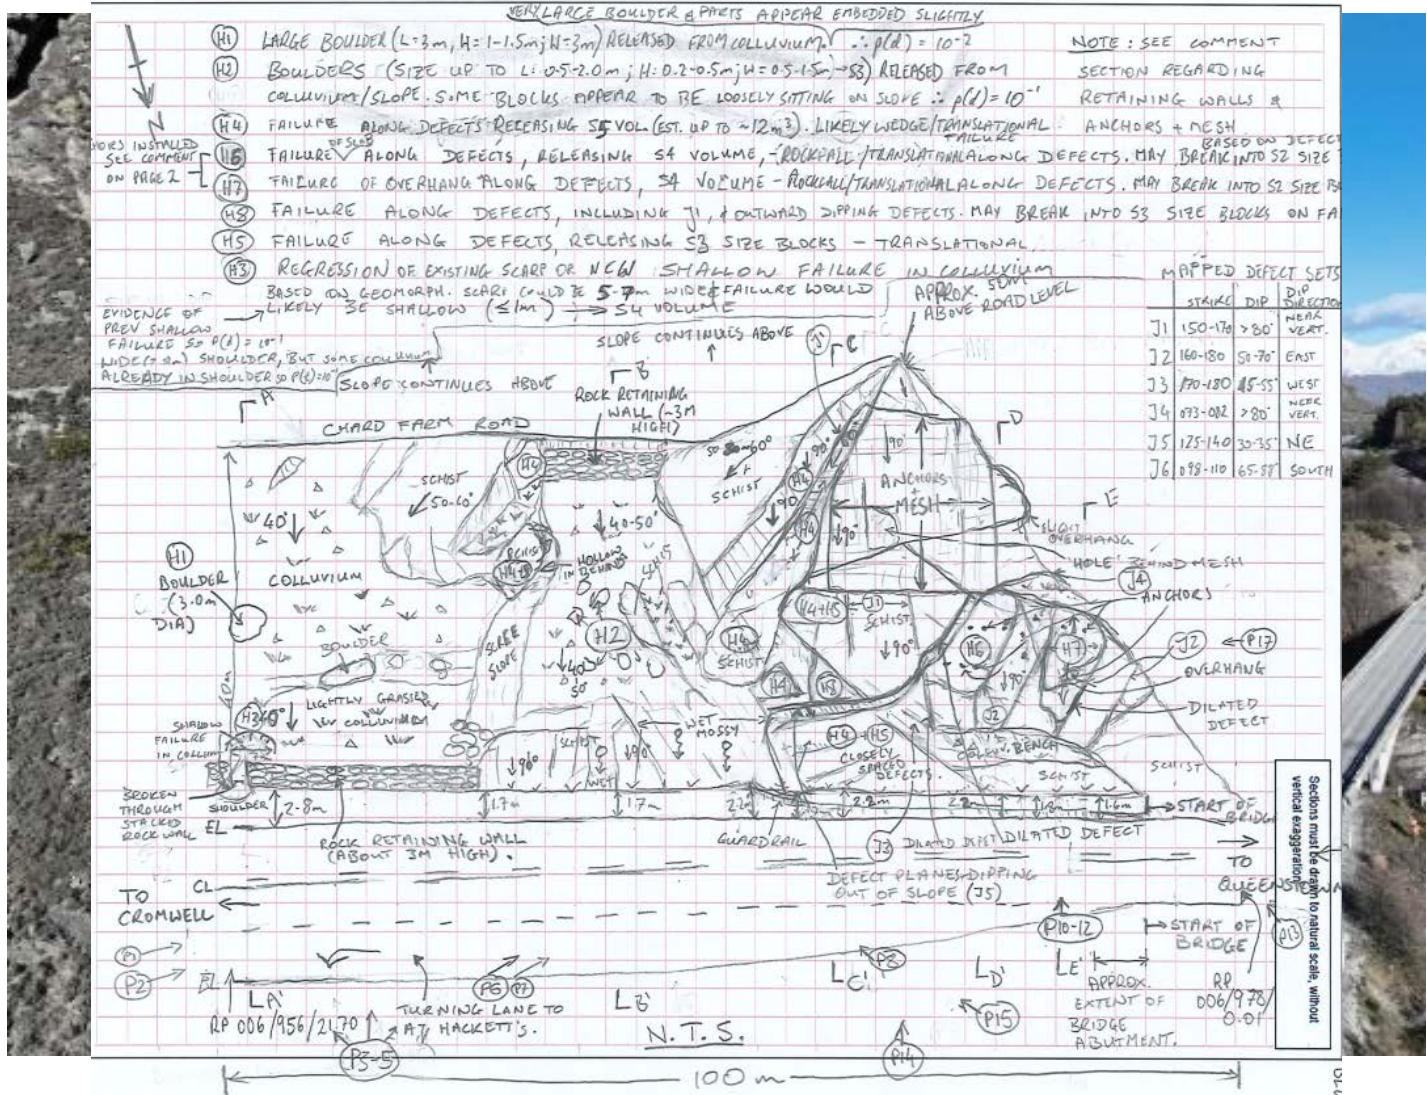 VERY LARGE BOULDER & PARTS APPEAR EMBEDDED SLIGHTLY
H1 LARGE BOULDER (L=3m, H=1-1.5m; W=3m) RELEASED FROM COLLUVIUM. ∴ p(d) = 10⁻²
H2 BOULDERS (SIZE UP TO L: 0.5-2.0m; H: 0.2-0.5m; W=0.5-1.5m → S3) RELEASED FROM
COLLUVIUM/SLOPE. SOME BLOCKS APPEAR TO BE LOOSELY SITTING ON SLOPE ∴ p(d) = 10⁻¹
H4 FAILURE ALONG DEFECTS RELEASING S5 VOL (EST. UP TO ~12m³). LIKELY WEDGE/TRANSLATIONAL FAILURE
H6 FAILURE OF SLAB ALONG DEFECTS, RELEASING S4 VOLUME, - ROCKFALL/TRANSLATIONAL ALONG DEFECTS. MAY BREAK INTO S2 SIZE
BASED ON DEFECT
H7 FAILURE OF OVERHANG ALONG DEFECTS, S4 VOLUME - ROCKFALL/TRANSLATIONAL ALONG DEFECTS. MAY BREAK INTO S2 SIZE
H8 FAILURE ALONG DEFECTS, INCLUDING J1, & OUTWARD DIPPING DEFECTS. MAY BREAK INTO S3 SIZE BLOCKS ON FA
H5 FAILURE ALONG DEFECTS, RELEASING S3 SIZE BLOCKS - TRANSLATIONAL
H3 REGRESSION OF EXISTING SCARP OR NEW SHALLOW FAILURE IN COLLUVIUM
BASED ON GEOMORPH. SCARP COULD BE 5-7m WIDE & FAILURE WOULD
LIKELY BE SHALLOW (≤1m) → S4 VOLUME
NOTE: SEE COMMENT
SECTION REGARDING
RETAINING WALLS &
ANCHORS + MESH
N
ORS INSTALLED
SEE COMMENT
ON PAGE 2
EVIDENCE OF
PREV SHALLOW
FAILURE SO P(d) = 10⁻¹
SHOULDER, BUT SOME COLLUVIUM
ALREADY IN SHOULDER SO
MAPPED DEFECT SETS
STRIKE DIP DIP DIRECTION
J1 150-170 >80° NEAR VERT.
J2 160-180 50-70° EAST
J3 170-180 45-55° WEST
J4 073-082 >80° NEAR VERT.
J5 125-140 30-35° NE
J6 098-110 65-88° SOUTH
APPROX. 50m
ABOVE ROAD LEVEL
SLOPE CONTINUES ABOVE
SLOPE CONTINUES ABOVE
A
B
C
D
E
J1
CHARD FARM ROAD
ROCK RETAINING
WALL (~3M
HIGH)
SCHIST
50-60°
H4
SCHIST
90°
H4
90°
H4
90°
ANCHORS
+
MESH
90°
40°
40-50°
SCHIST
H4+8
HOLLOW
IN BEHIND
SLIGHT
OVERHANG
HOLE BEHIND MESH
J4
ANCHORS
H1
BOULDER
(3.0m
DIA)
COLLUVIUM
H2
H4+H5
J1
SCHIST
90°
H6
SCHIST
H6
H7
J2
P17
OVERHANG
DILATED
DEFECT
BOULDER
SCREE
SLOPE
40°
50°
H4
H8
90°
J2
40m
LIGHTLY GRASSED
COLLUVIUM
H3
SHALLOW
FAILURE
IN COLLUV
WET
MOSSY
H4 H5
CLOSELY
SPACED
DEFECTS.
COLLUV. BENCH
SCHIST
SCHIST
SCHIST
90°
WET
90°
BROKEN
THROUGH
STACKED
ROCK WALL
SHOULDER
2-8m
1.7m
1.7m
2.2m
2.2m
2.2m
1.8m
1.6m
START OF
BRIDGE
EL
ROCK RETAINING WALL
(ABOUT 3M HIGH).
GUARDRAIL
J3
DILATED DEFECT
DILATED DEFECT
DEFECT PLANES DIPPING
OUT OF SLOPE (J5)
TO
QUEENSTOWN
CL
TO
CROMWELL
P10-12
START OF
BRIDGE
P13
P1
P2
P6
P7
P8
EL
A'
B'
C'
D'
E'
RP 006/956/2170
TURNING LANE TO
AJ HACKETT'S.
P3-5
N.T.S.
P14
P15
APPROX.
EXTENT OF
BRIDGE
ABUTMENT.
RP
006/978/
0.01
100 m
Sections must be drawn to natural scale, without
vertical exaggeration